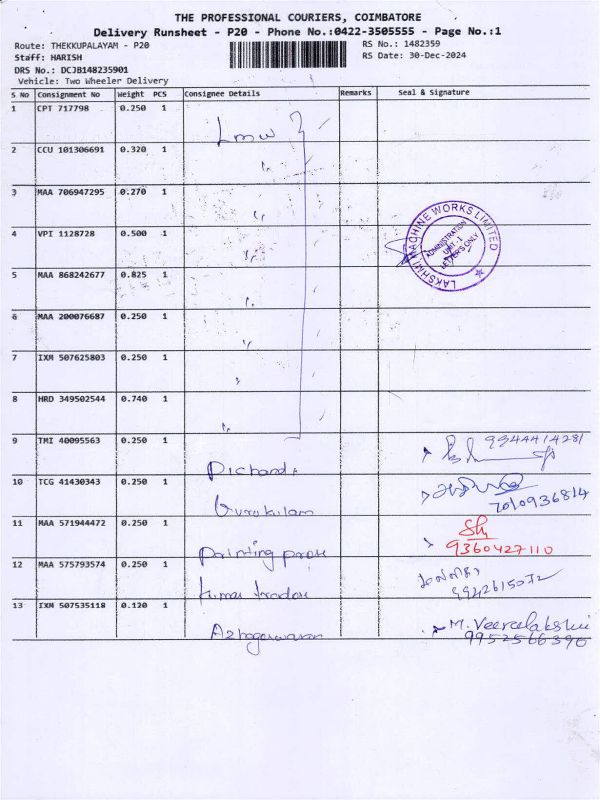 THE PROFESSIONAL COURIERS, COIMBATORE
Delivery Runsheet - P20 - Phone No.:0422-3505555 - Page No.:1
Route: THEKKUPALAYAM - P20 RS No.: 1482359
Staff: HARISH RS Date: 30-Dec-2024
DRS No.: DCJB148235901
Vehicle: Two Wheeler Delivery
S No Consignment No Weight PCS Consignee Details Remarks Seal & Signature
1 CPT 717798 0.250 1 Lmw
2 CCU 101306691 0.320 1 "
3 MAA 706947295 0.270 1 "
4 VPI 1128728 0.500 1 "
LAKSHMI MACHINE WORKS LIMITED
ADMINISTRATION
UNIT-1
LETTERS ONLY
5 MAA 868242677 0.825 1 "
6 MAA 200076687 0.250 1 "
7 IXM 507625803 0.250 1 "
8 HRD 349502544 0.740 1 "
9 TMI 40095563 0.250 1 9344414281
10 TCG 41430343 0.250 1 Gurukulam 7010936814
11 MAA 571944472 0.250 1 Printing press 9360427110
12 MAA 575793574 0.250 1 Kumar traders
13 IXM 507535118 0.120 1 M. Veeralakshmi
9952566396